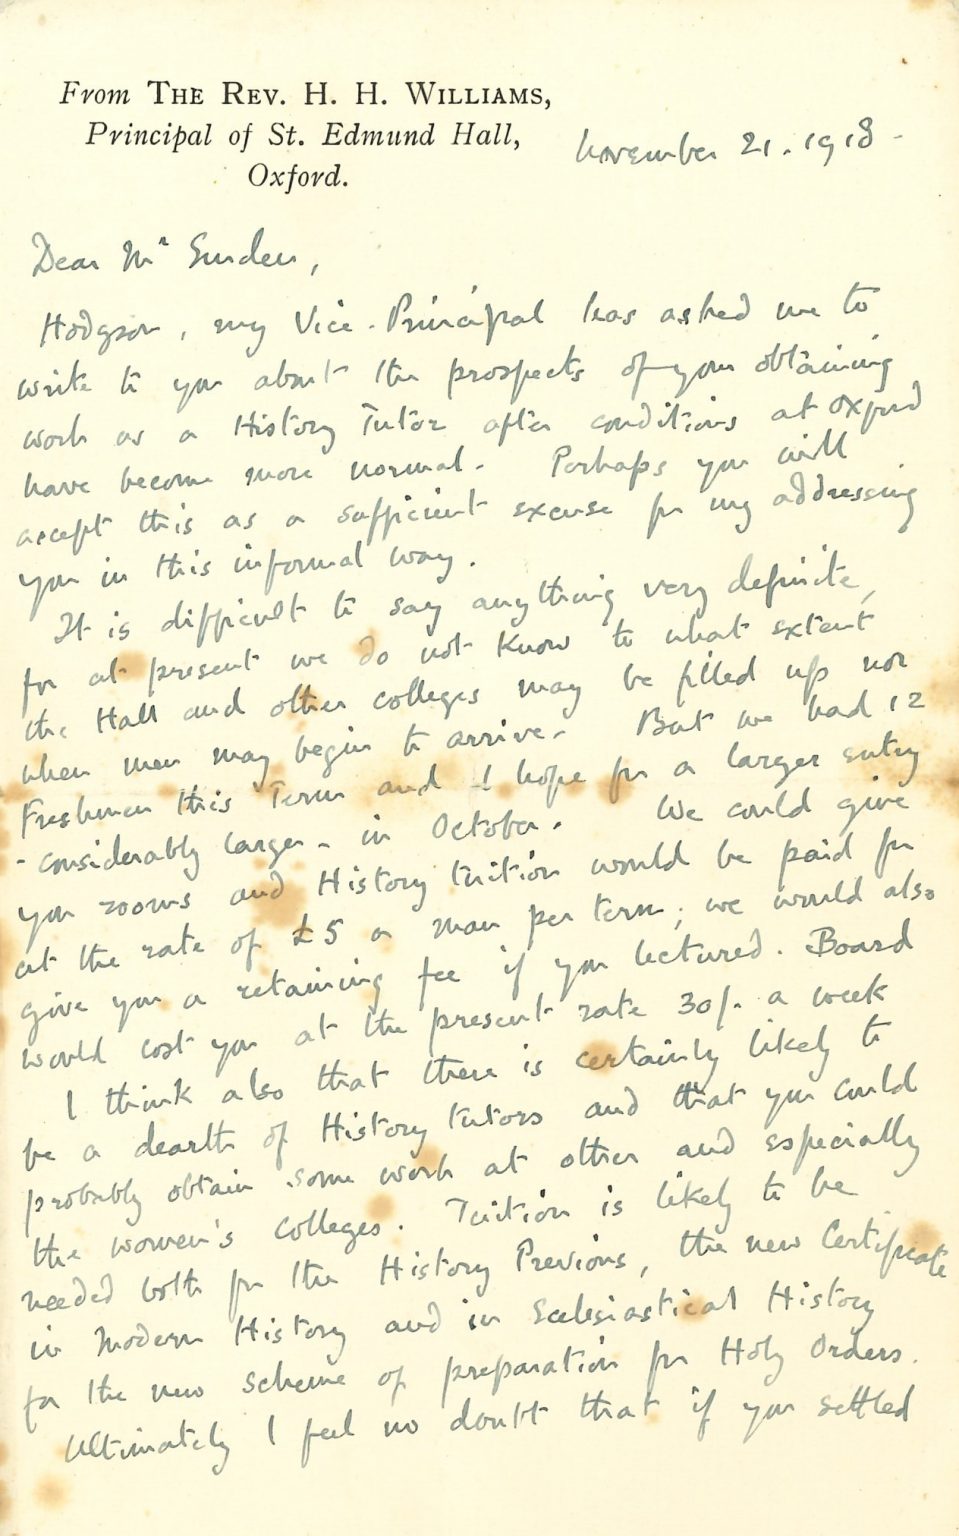 From THE REV. H. H. WILLIAMS,
Principal of St. Edmund Hall,
Oxford.
November 21. 1918 -
Dear Mr Emden,
Hodgson, my Vice-Principal has asked me to
write to you about the prospects of your obtaining
work as a History Tutor after conditions at Oxford
have become more normal. Perhaps you will
accept this as a sufficient excuse for my addressing
you in this informal way.
It is difficult to say anything very definite,
for at present we do not know to what extent
the Hall and other colleges may be filled up nor
when men may begin to arrive. But we had 12
Freshmen this Term and I hope for a larger entry
- considerably larger - in October. We could give
you rooms and History tuition would be paid for
at the rate of £5 a man per term; we would also
give you a retaining fee if you lectured. Board
would cost you at the present rate 30/- a week
I think also that there is certainly likely to
be a dearth of History tutors and that you could
probably obtain some work at other and especially
the women's colleges. Tuition is likely to be
needed both for the History Previous, the new Certificate
in Modern History and in Ecclesiastical History
for the new scheme of preparation for Holy Orders.
Ultimately I feel no doubt that if you settled